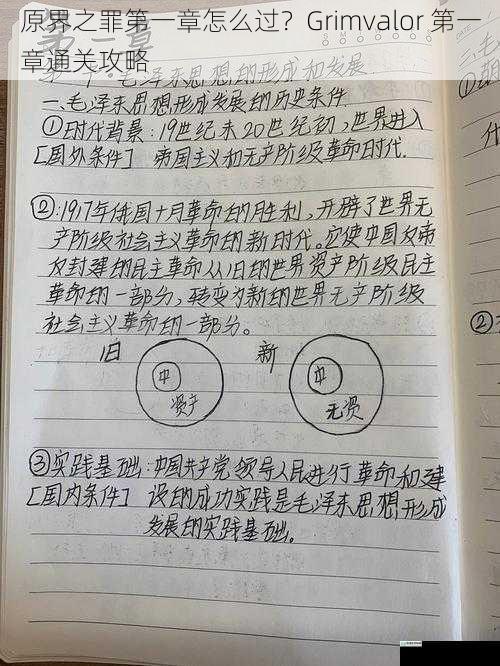 原界之罪第一章怎么过？Grimvalor 第一
章通关攻略
毛泽东思想的形成和发展
一、毛泽东思想形成发展的历史条件
①时代背景：19世纪末20世纪初，世界进入
[国外条件] 帝国主义和无产阶级革命时代.
②：1917年俄国十月革命的胜利，开辟了世界无
产阶级社会主义革命的新时代。它使中国反帝
反封建的民主革命从旧的世界资产阶级民主
革命的一部分，转变为新的世界无产阶级
社会主义革命的一部分。
旧 新
中 中
资产 无资
③实践基础：中国共产党领导人民进行革命和建
[国内条件] 设的成功实践是毛泽东思想形成
发展的实践基础。
②